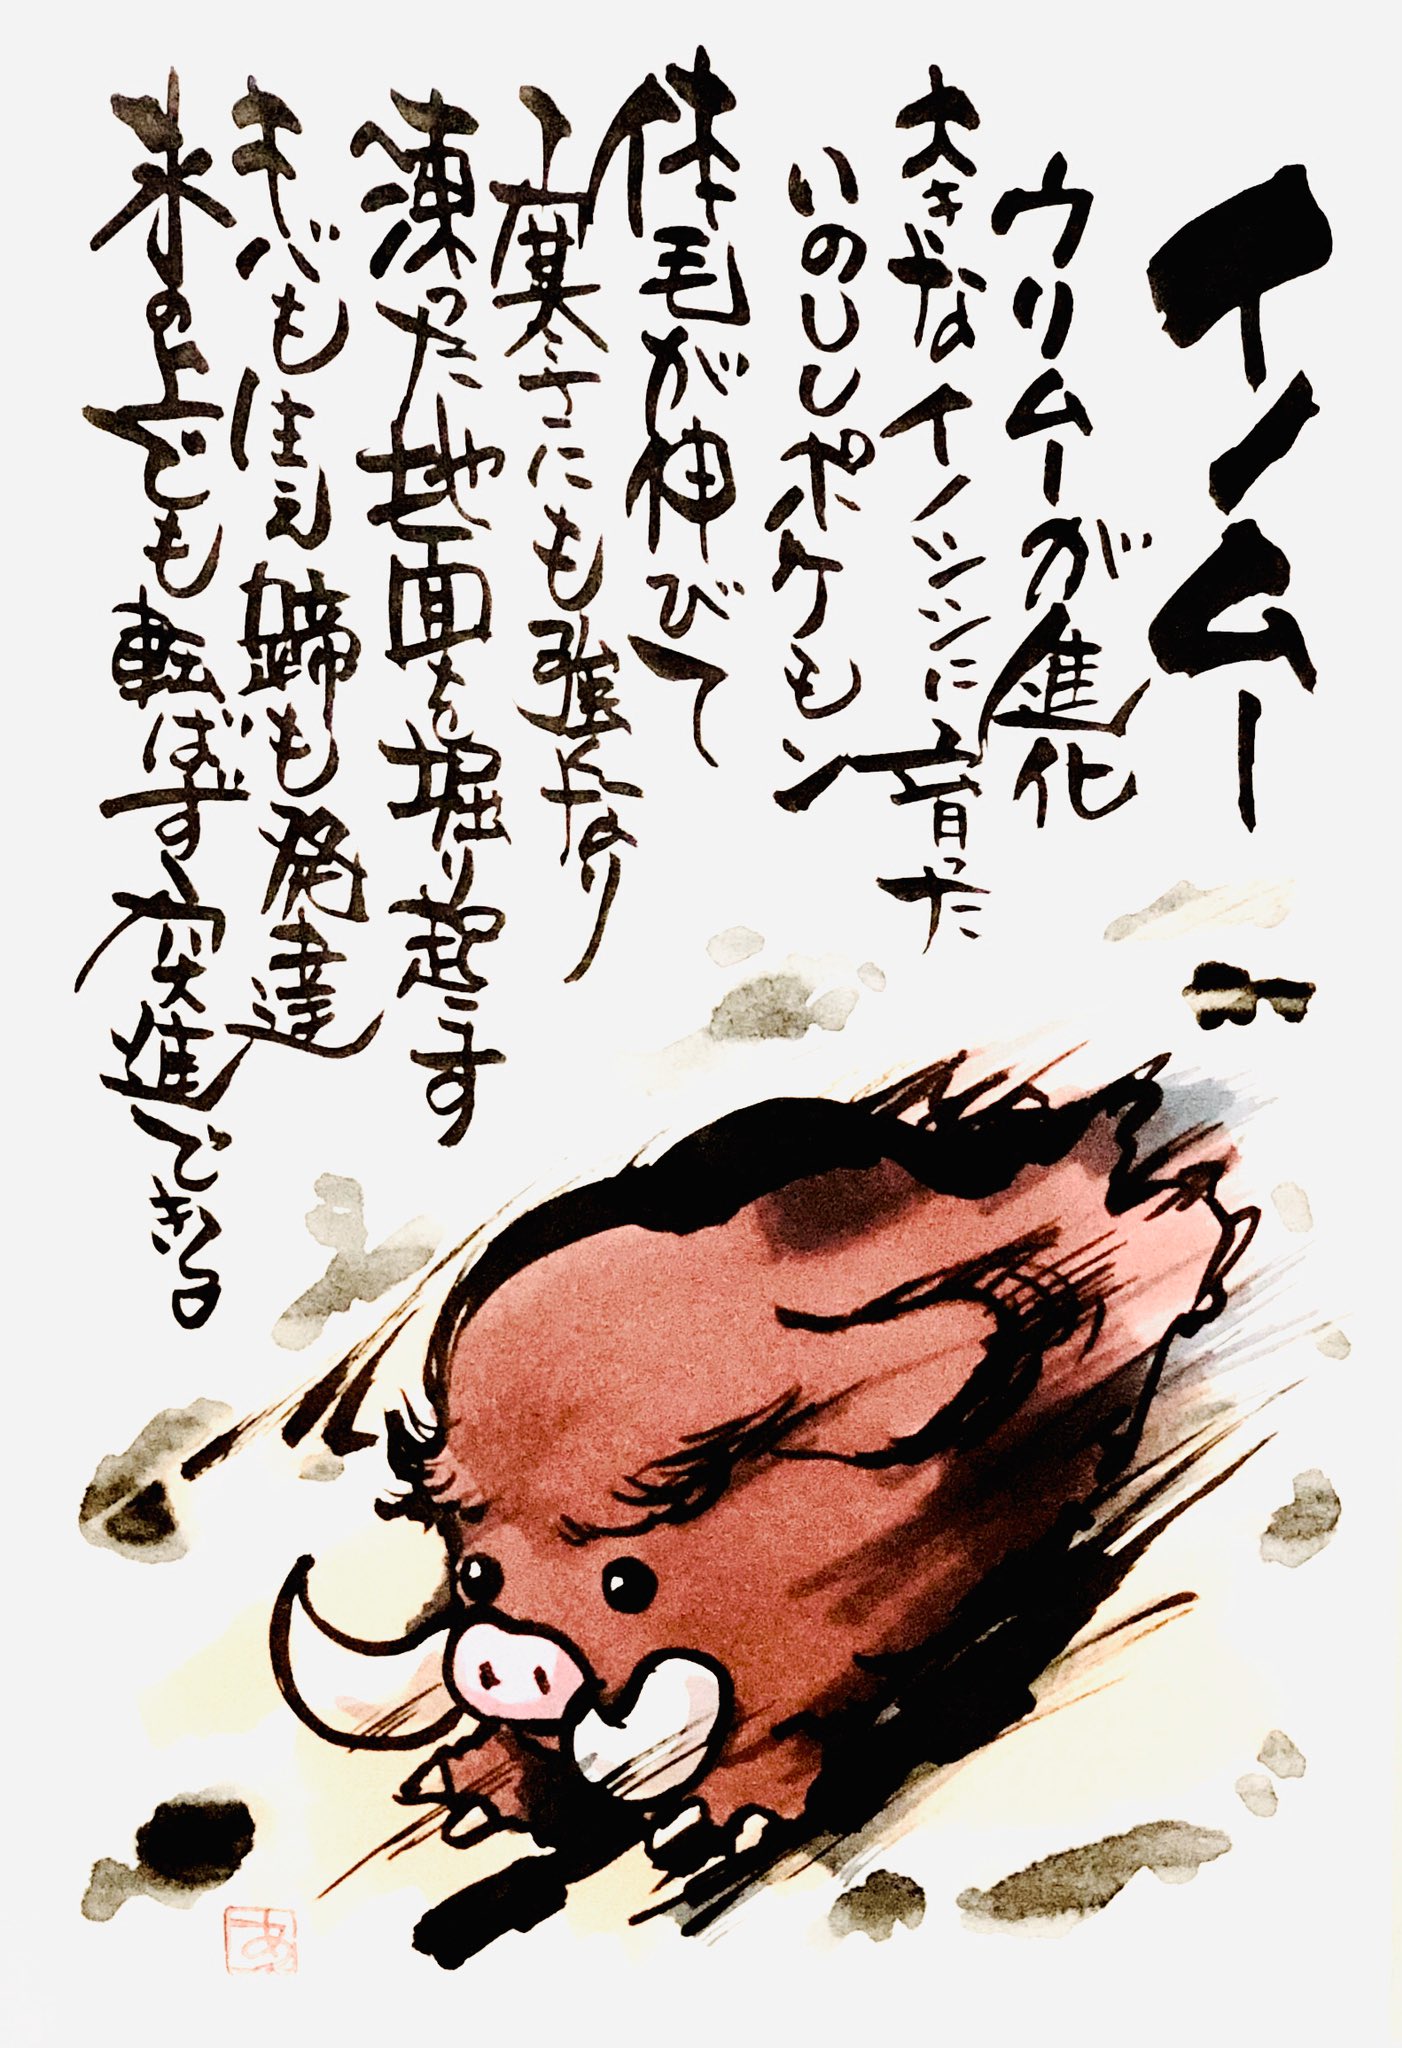 イノムー
ウリムーが進化
大きなイノシシに育った
いのししポケモン
体毛が伸びて
寒さにも強くなり
凍った地面を掘り起こす
キバも生え蹄も発達
氷の上でも転ばず突進できる
あ